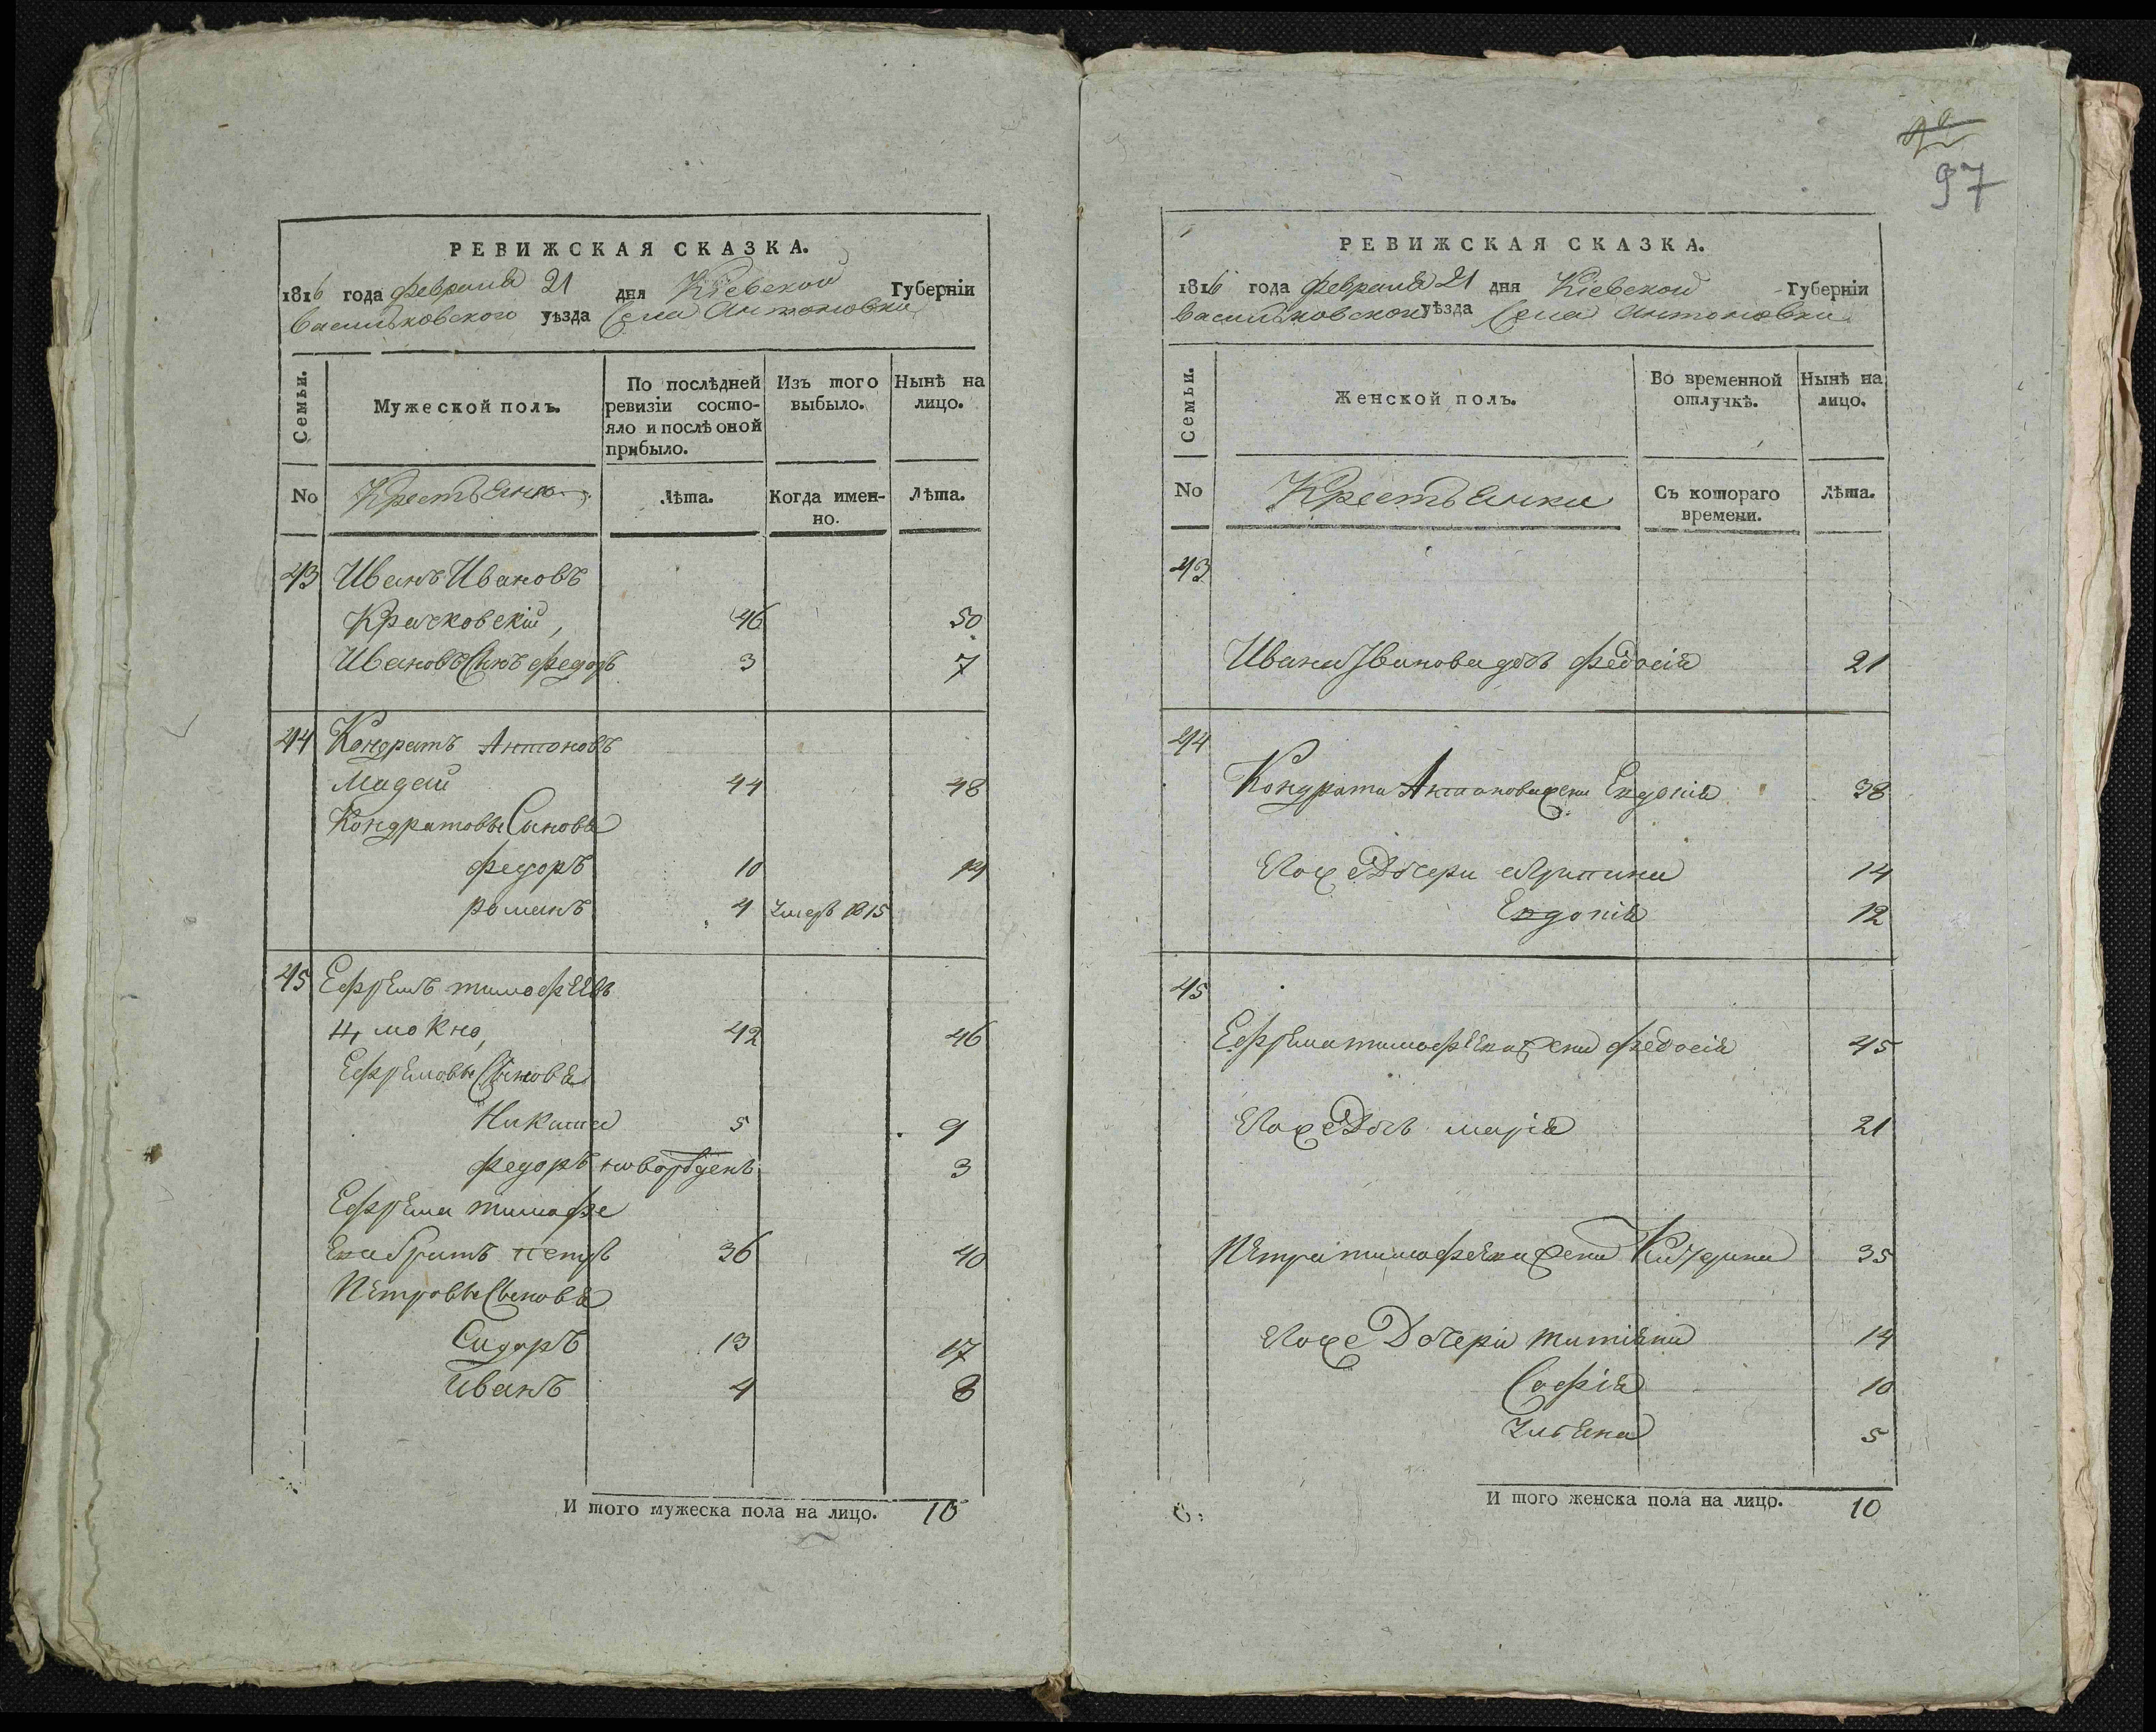 97
РЕВИЖСКАЯ СКАЗКА.
1816 года февраля 21 дня Кіевской Губерніи
Васильковского уѣзда Села Антоновки
Семьи.
Мужеской полъ.
По послѣдней ревизіи состояло и послѣ оной прибыло.
Изъ того выбыло.
Нынѣ на лицо.
No
Крестьяне
Лѣта.
Когда именно.
Лѣта.
43 Иванъ Ивановъ
Крачковскій, 46 50
Ивановъ Сынъ федоръ 3 7
44 Кондратъ Антоновъ
Мадей 44 48
Кондратовы Сыновья
федоръ 10 14
романъ 4 Умеръ 1815
45 Ефремъ тимофѣевъ
Чмокно, 42 46
Ефремовы Сыновья
Никита 5 9
федоръ новорожденъ 3
Ефрема тимофе
ева братъ петръ 36 40
Петровы Сыновья
Сидоръ 13 17
Иванъ 4 8
И того мужеска пола на лицо. 10
РЕВИЖСКАЯ СКАЗКА.
1816 года февраля 21 дня Кіевской Губерніи
Васильковского уѣзда Села Антоновки
Семьи.
Женской полъ.
Во временной отлучкѣ.
Нынѣ на лицо.
No
Крестьянки
Съ котораго времени.
Лѣта.
43
Ивана Иванова дочь федосія 21
44
Кондрата Антонова жена Евдокія 38
Его же Дочери 14
Евдокія 12
45
Ефрема тимофѣева жена федосія 45
Его же Дочь марія 21
Петра тимофеева жена 35
Его же Дочери татіяна 14
Софія 10
Ульяна 5
И того женска пола на лицо. 10